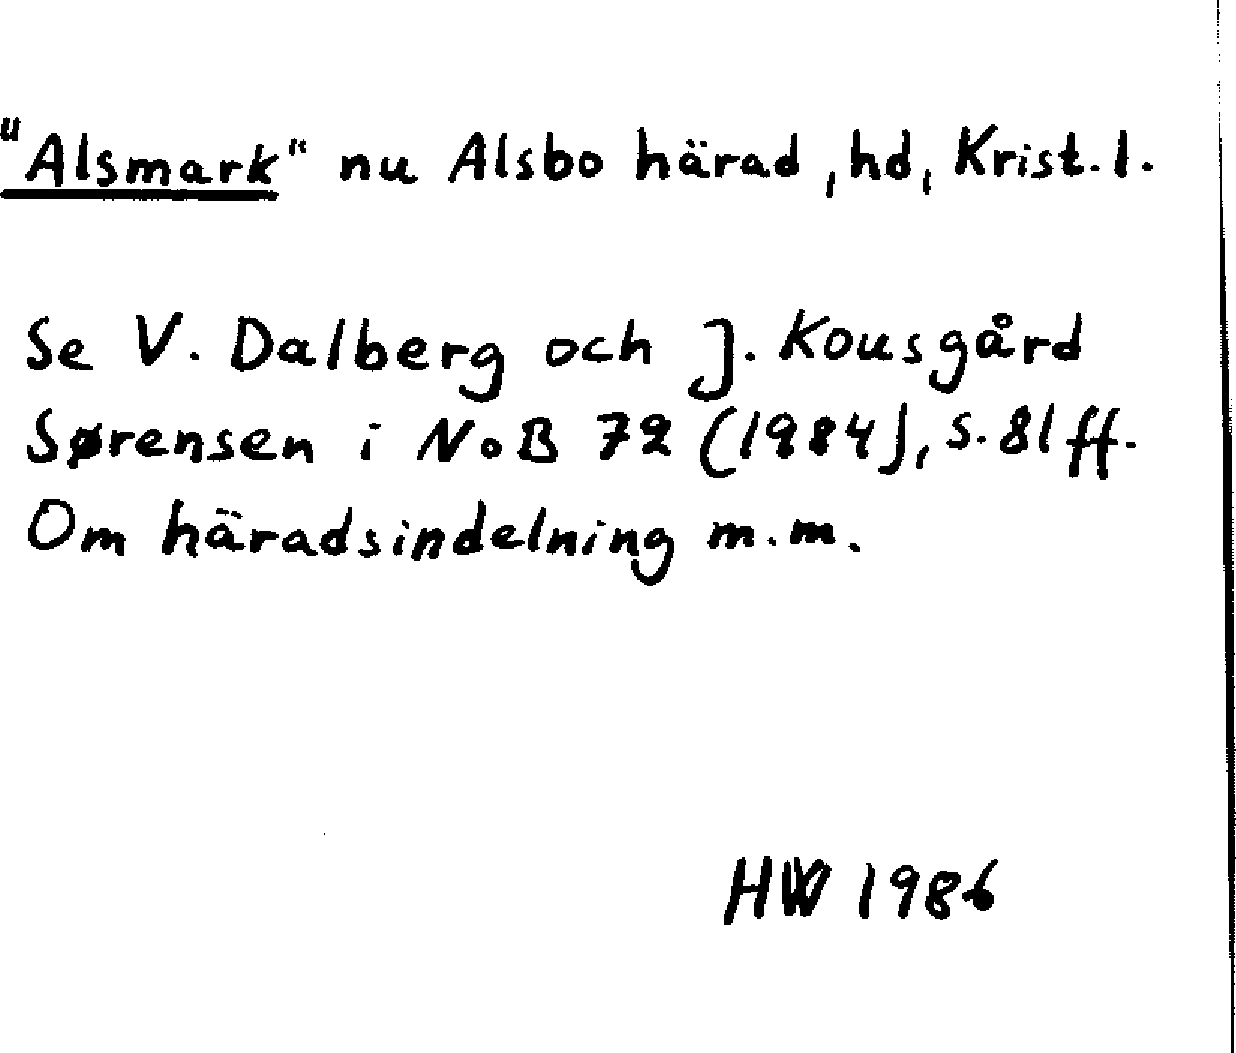 "Alsmark" nu Alsbo härad, hd, Krist. l.
Se V. Dalberg och J. Kousgård
Sørensen i NoB 72 (1984), s. 81 ff.
Om häradsindelning m.m.
HW 1986